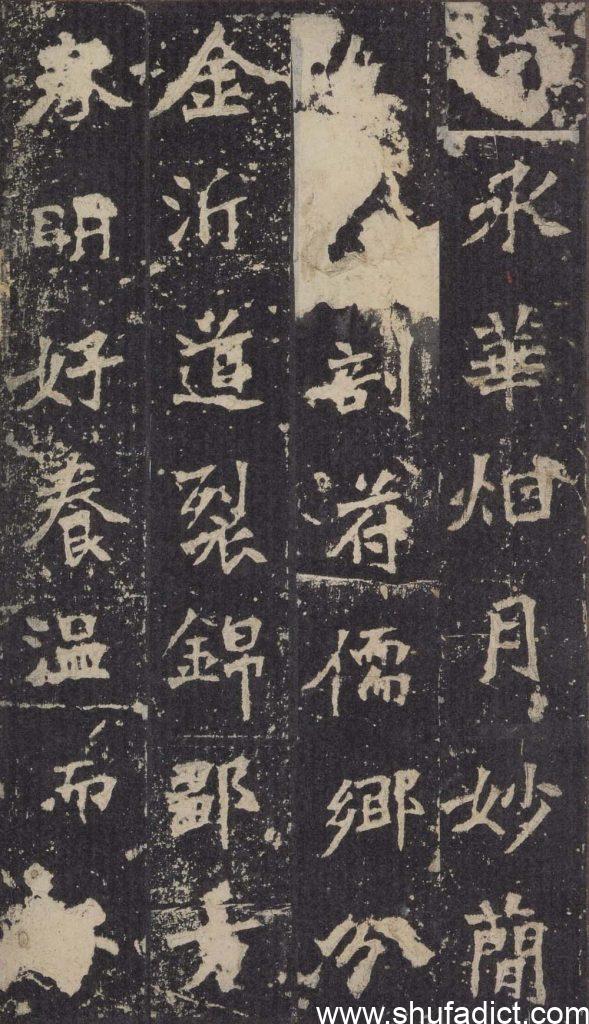 承華烟月妙簡
剖苻儒鄉分
金沂道裂錦鄒方
春明好養溫而
www.shufadict.com